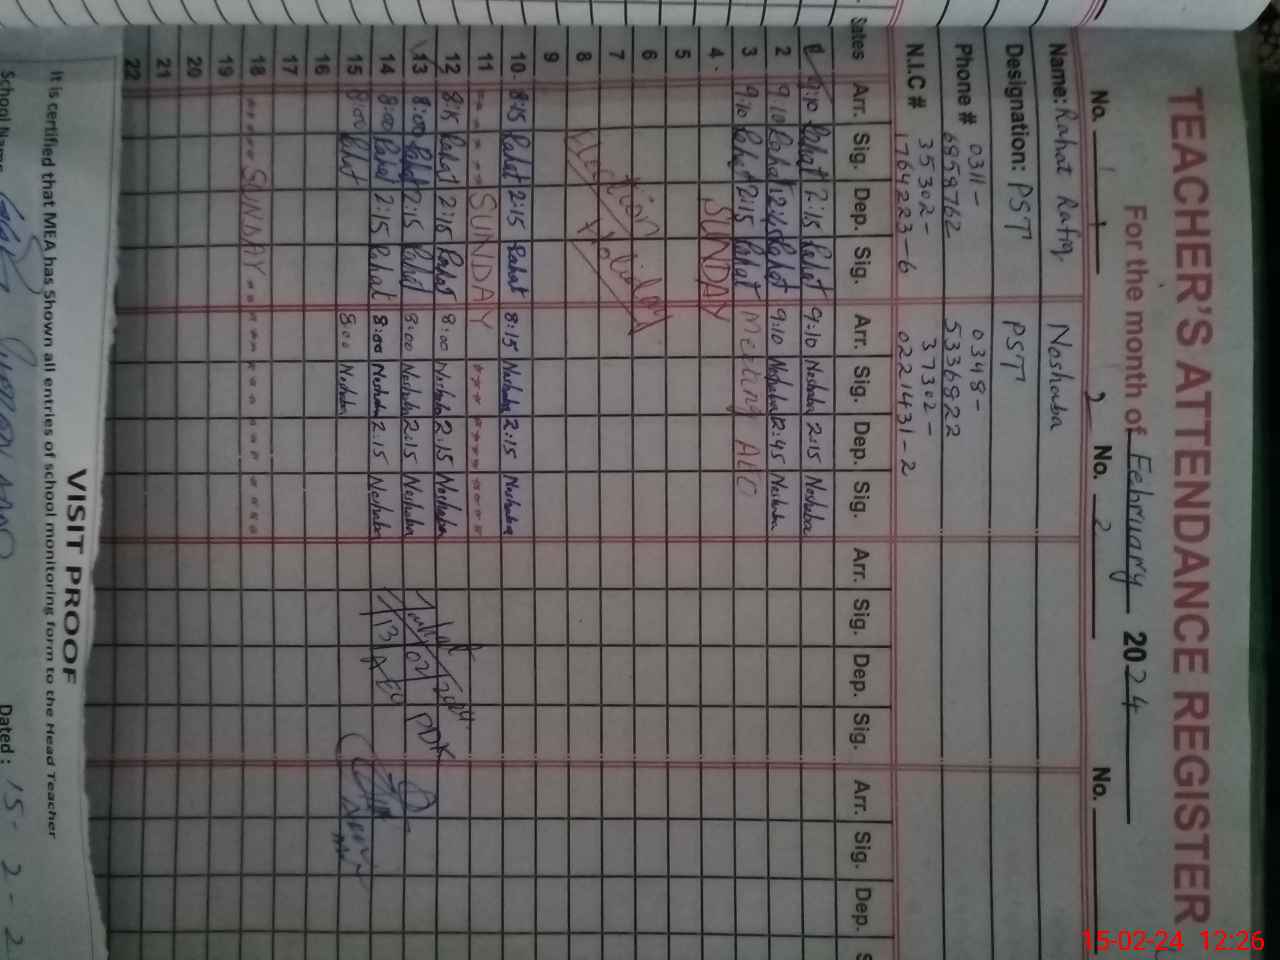 TEACHER'S ATTENDANCE REGISTER
For the month of February 2024
No. 1 No. 2 No.
Name: Rahat Rafiq Noshaba
Designation: PST PST
Phone # 0311- 6859762 0348- 5336922
N.I.C # 35302- 1764223-6 37302- 0221431-2
Dates Arr. Sig. Dep. Sig. Arr. Sig. Dep. Sig. Arr. Sig. Dep. Sig. Arr. Sig. Dep.
1 9:10 Rahat 2:15 Rahat 9:10 Noshaba 2:15 Noshaba
2 9:10 Rahat Rahat 9:10 Noshaba 2:45 Noshaba
3 9:10 Rahat 2:15 Rahat Meeting AEO
4. SUNDAY
5
6
7
8
Election Holiday
9
10. 8:15 Rahat 2:15 Rahat 8:15 Noshaba 2:15 Noshaba
11 SUNDAY
12 8:15 Rahat 2:15 Rahat 8:00 Noshaba 2:15 Noshaba
13 8:00 Rahat 2:15 Rahat 8:00 Noshaba 2:15 Noshaba
14 8:00 Rahat 2:15 Rahat 8:00 Noshaba 2:15 Noshaba
15 8:00 Rahat 8:00 Noshaba
16
17
18 SUNDAY
19
20
21
22
VISIT PROOF
It is certified that MEA has Shown all entries of school monitoring form to the Head Teacher
School Name Dated: 15-2-2
15-02-24 12:26